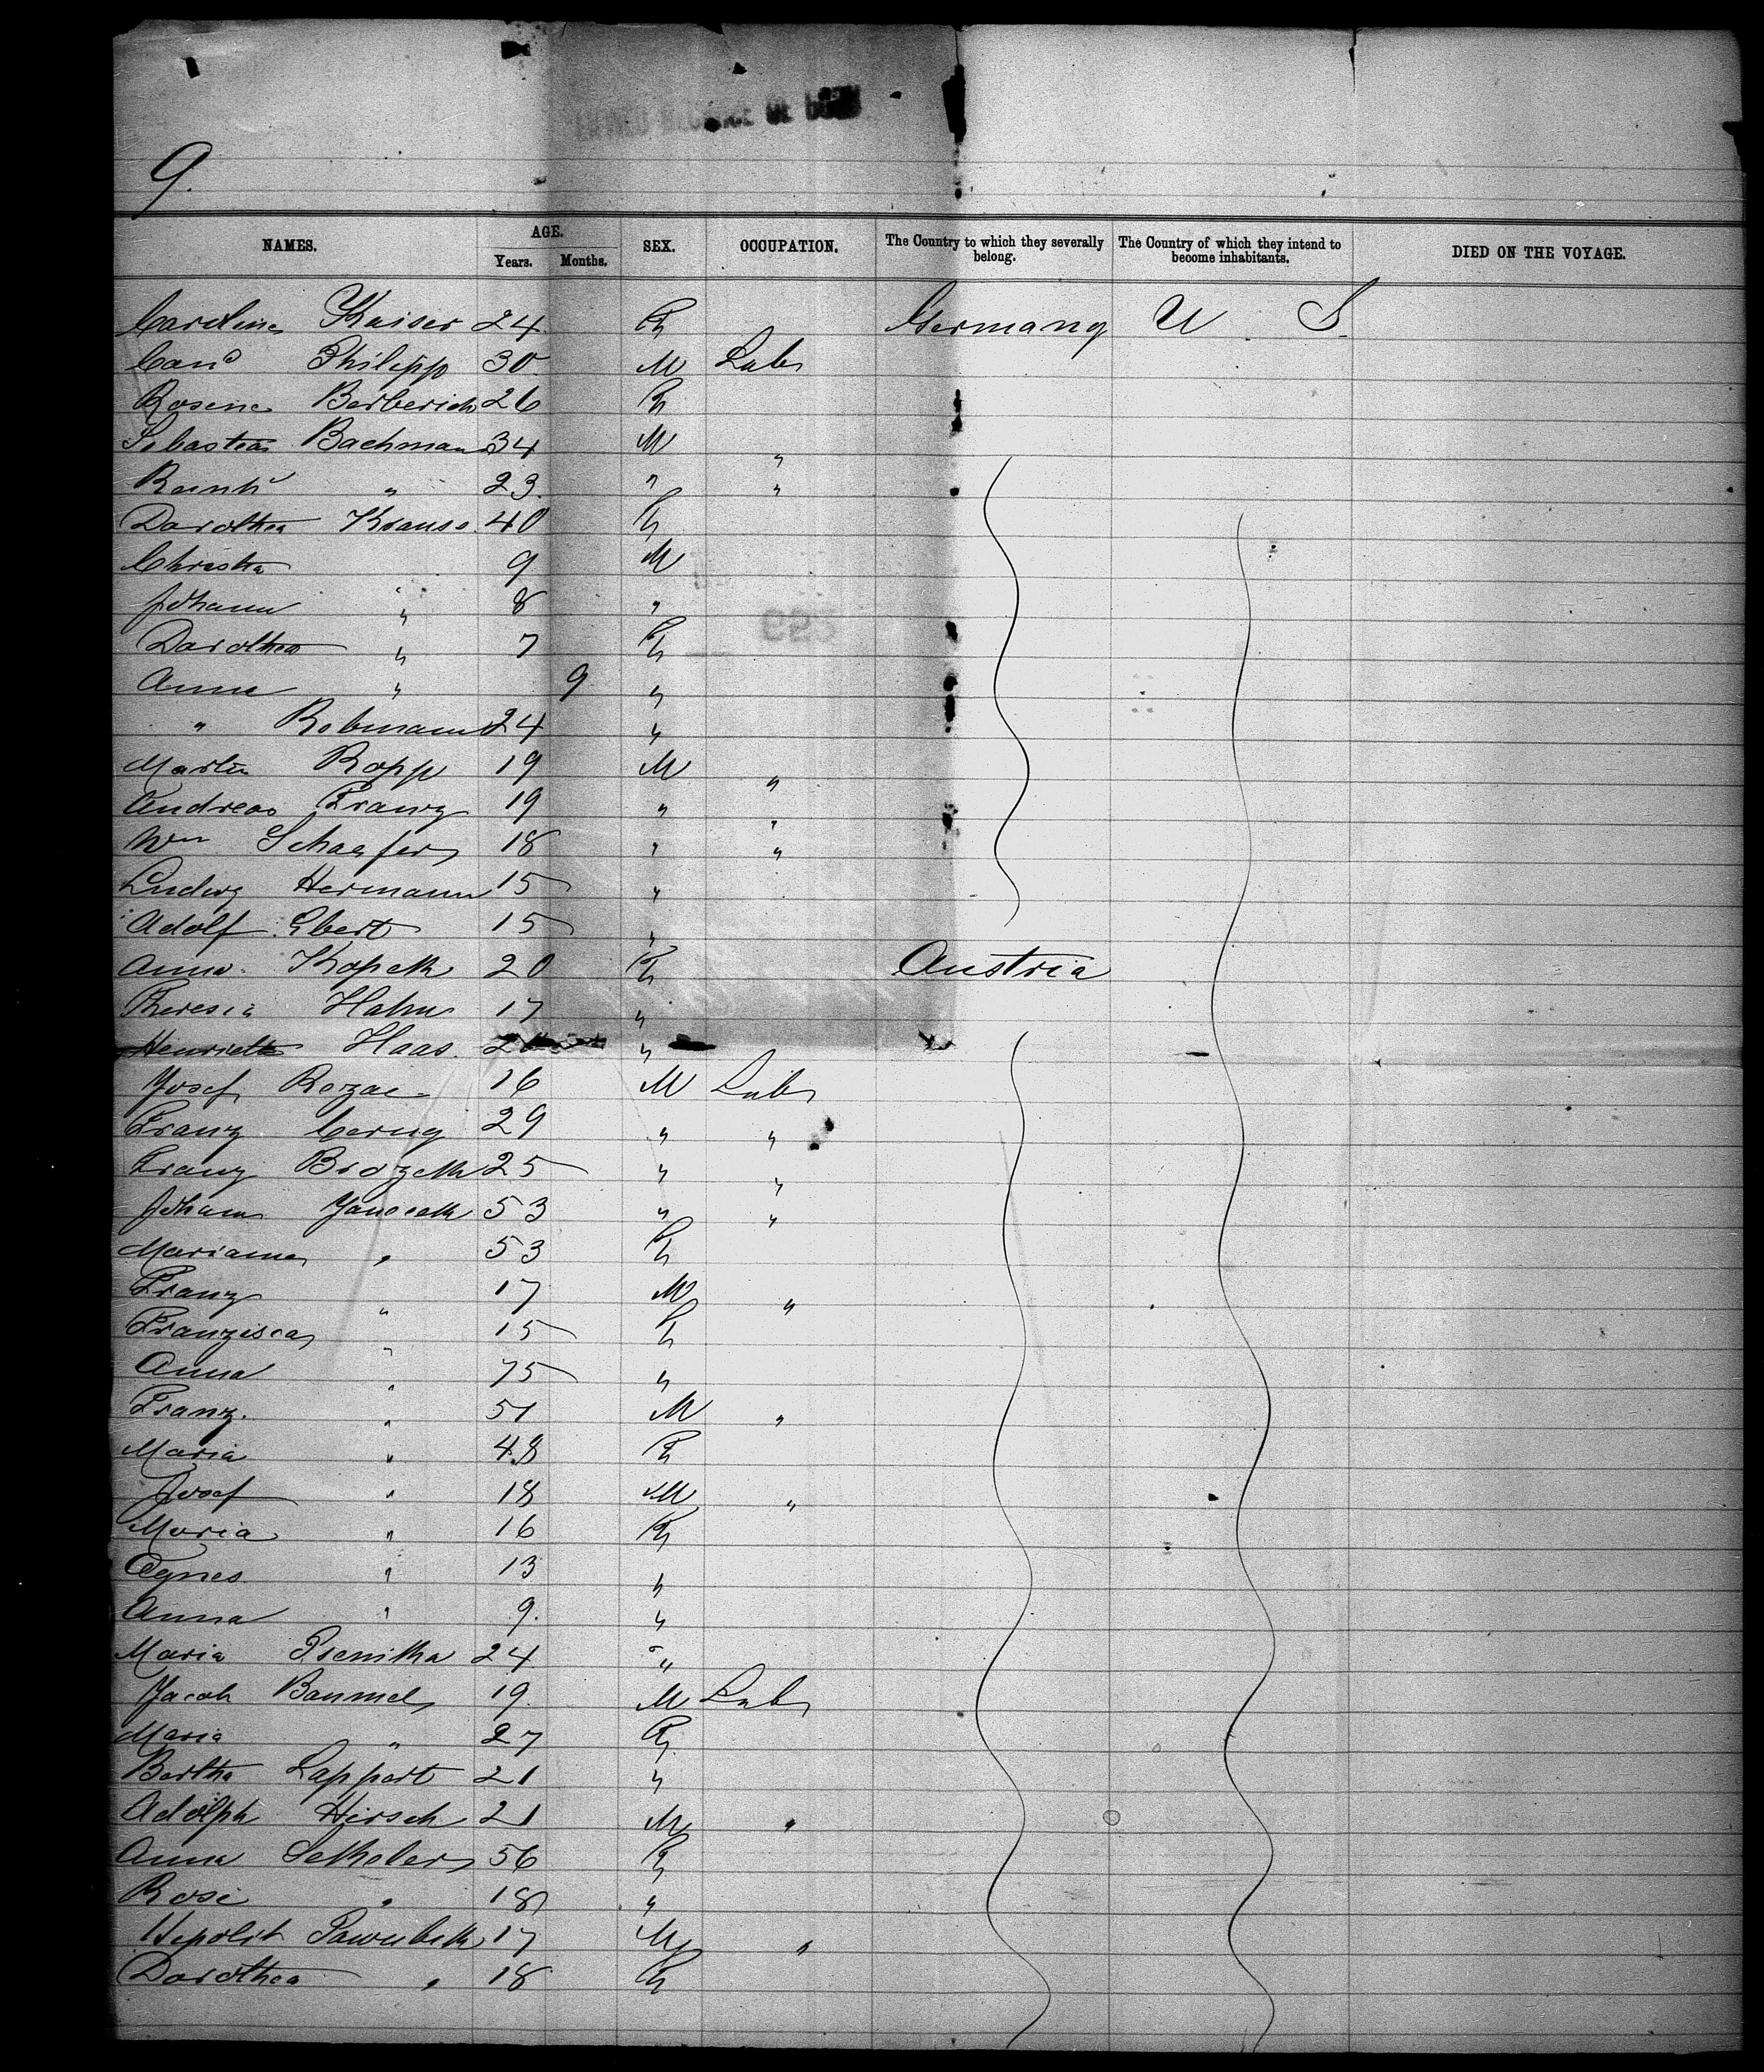 9.
NAMES. AGE. Years. Months. SEX. OCCUPATION. The Country to which they severally belong. The Country of which they intend to become inhabitants. DIED ON THE VOYAGE.
Caroline Kaiser 24 F Germany U S
Cond Philipp 30 M Labr
Rosine Berberich 26 F
Sebastian Bachmann 34 M "
" 23 " "
Dorothea Krause 40 F
Christia 9 M
Johann " 8 "
Dorothea " 7 F
Anna " 9 "
" Rebmann 24 "
Martin Ropp 19 M "
Andreas Franz 19 " "
Wm Schaefer 18 " "
Ludwig Hermann 15 "
Adolf Ebert 15 "
Anna Kopeck 20 F Austria
Theresia Hahn 17 "
Henriette Haas "
Josef Rezac 16 M Labr
Franz Cerny 29 " "
Franz Brozeck 25 " "
Johann Janoceck 53 " "
Marianna " 53 F
Franz " 17 M "
Franzisca " 15 F
Anna " 75 "
Franz " 51 M "
Maria " 48 F
Josef " 18 M "
Maria " 16 F
Agnes " 13 "
Anna " 9 "
Maria Psenitka 24 "
Jacob Baumel 19 M Labr
Maria " 27 F
Bertha Lappert 21 "
Adolph Hirsch 21 M "
Anna 56 F
Rosi " 18 "
Hypolit 17 M "
Dorothea " 18 F